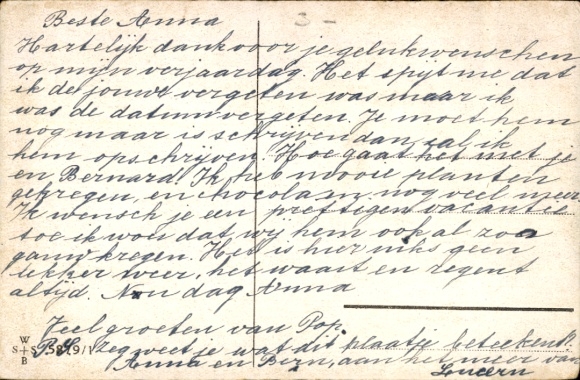 3-
Beste Anna
Hartelijk dank voor je gelukwenschen
op mijn verjaardag. Het spijt me dat
ik de jouwe vergeten was maar ik
was de datum vergeten. Je moet hem
nog maar is schrijven dan zal ik
hem opschrijven. Hoe gaat het met je
en Bernard! Ik heb mooie planten
gekregen, en chocolaas nog veel meer
Ik wensch je een prettegen vacantie
toe ik wou dat wij hem ook al zoo
gauw kregen. Het is hier niks geen
lekker weer, het waait en regent
altijd. Nou dag Anna
Veel groeten van Pop.
P.S. Zeg weet je wat dit plaatje beteekent?
Anna en Bern, aan het meer van
Lucern
W
S+S 5879/1
B